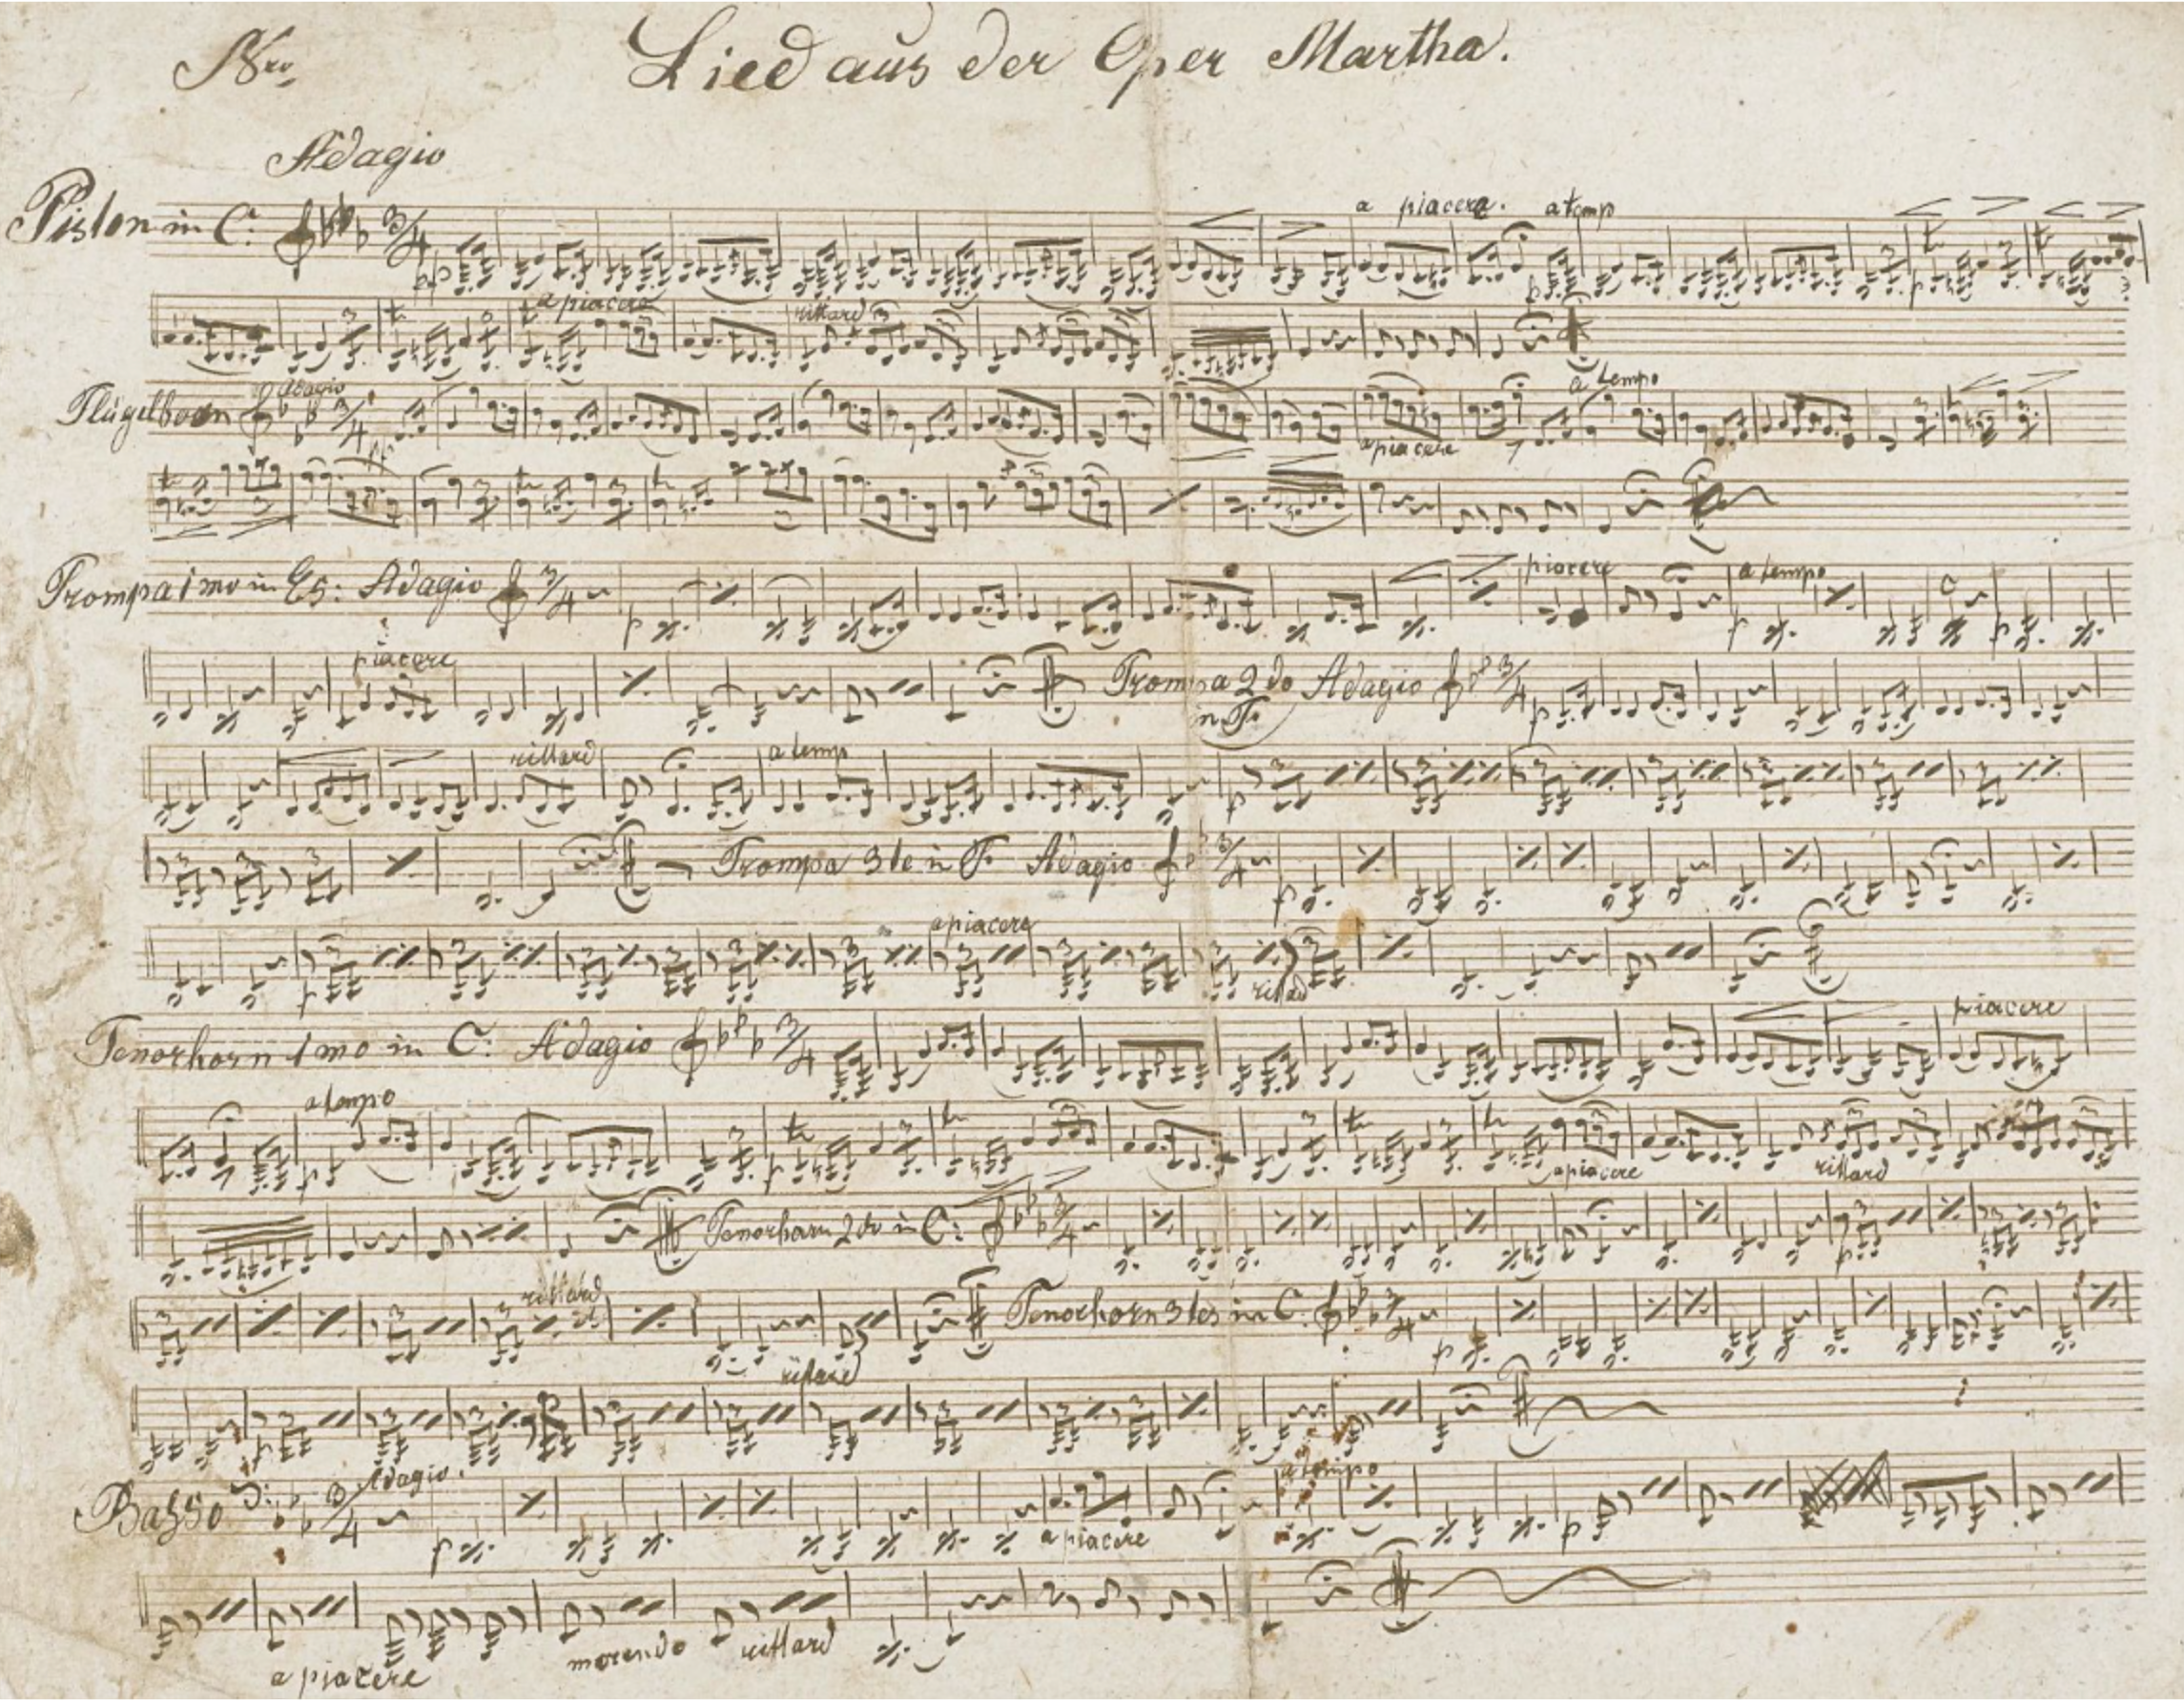 Nro. Lied aus der Oper Martha.
Adagio
Piston in C: 3/4 a piacere. a temp
a piacere rittard
Flügelhorn Adagio 3/4 a piacere a tempo
Trompa 1mo in Es: Adagio 3/4 piacere a tempo
piacere Trompa 2do in F. Adagio 3/4
rittard a temp
Trompa 3te in F. Adagio 3/4
a piacere rittard
Tenorhorn 1mo in C: Adagio 3/4 piacere
a tempo a piacere rittard
Tenorhorn 2do in C: 3/4
rittard Tenorhorn 3tes in C: 3/4
rittard
Basso Adagio. 3/4 a piacere a tempo
a piacere morendo rittard